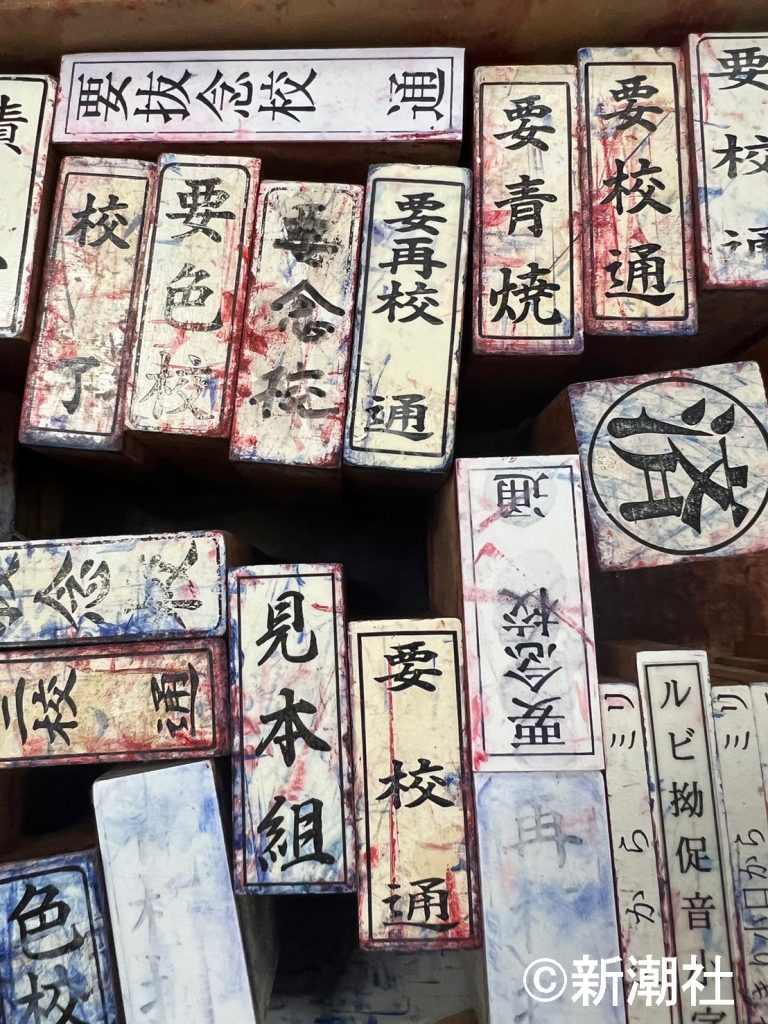 要抜念校　通
責
校　了
要色校
要念校
要再校　通
要青焼
要校通
要校通
済
念校
三校　通
見本組
要校通
要念校　通
再
色校
ミリ　から
ルビ拗促音小字
ミリ
から
©新潮社